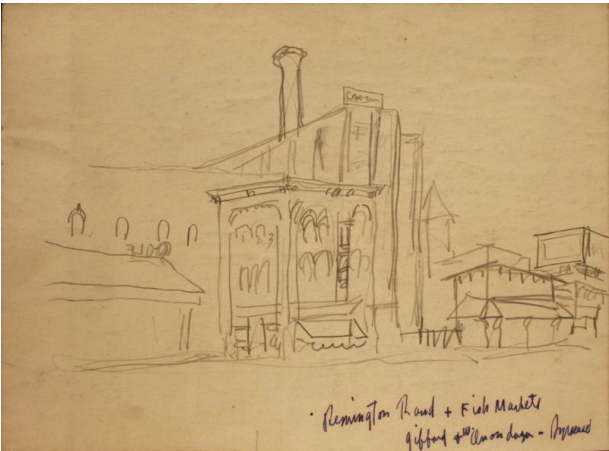 Remington Rand + Fish Markets
Gifford + W Onondaga - Syracuse